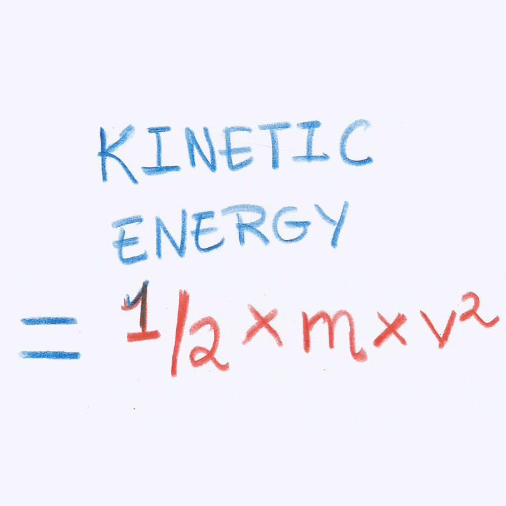 KINETIC
ENERGY
= 1/2 × m × v²